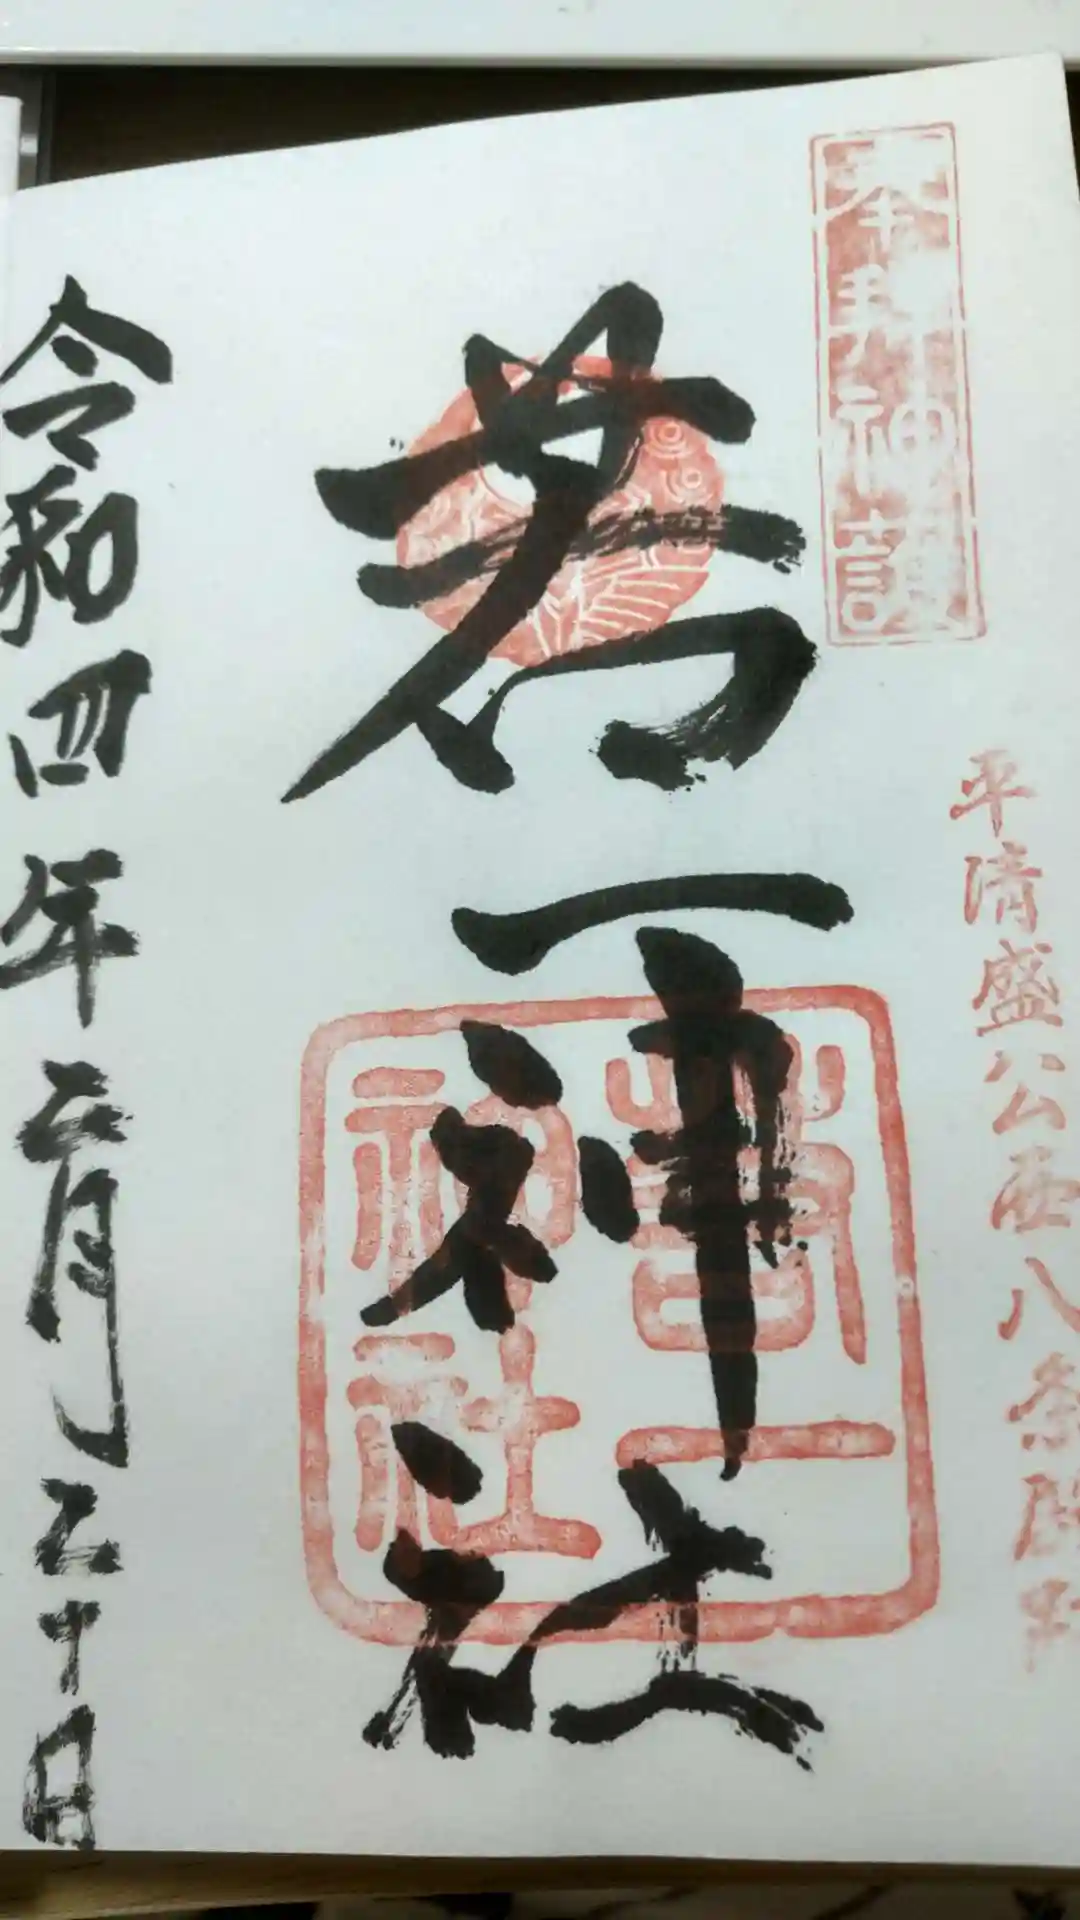 奉拝神護
平清盛公西八条殿
若一神社
若一
神社
令和四年月十日